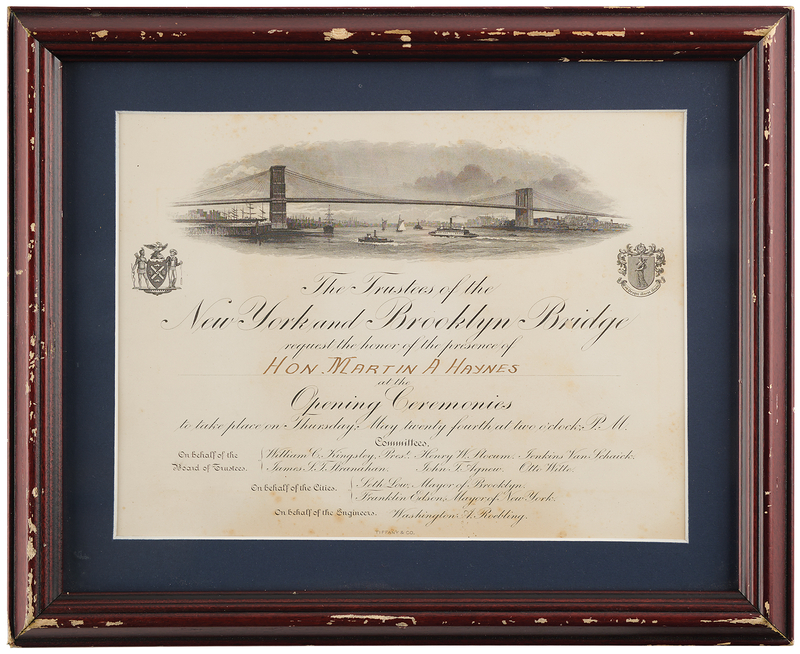 The Trustees of the
New York and Brooklyn Bridge
request the honor of the presence of
HON. MARTIN A HAYNES
at the
Opening Ceremonies
to take place on Thursday, May twenty fourth at two o'clock, P.M.
Committees,
On behalf of the Board of Trustees. William C. Kingsley, Prest. Henry W. Slocum. Jenkins Van Schaick.
James S. T. Stranahan. John T. Agnew. Otto Witte.
On behalf of the Cities. Seth Low, Mayor of Brooklyn.
Franklin Edson, Mayor of New York.
On behalf of the Engineers. Washington A. Roebling.
TIFFANY & CO.